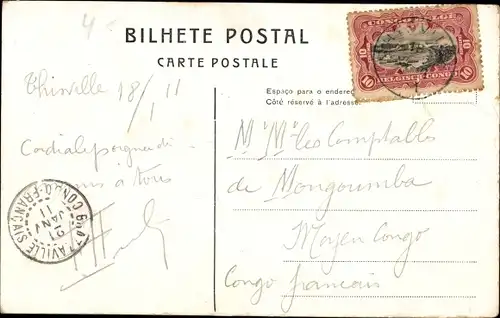 4
BILHETE POSTAL
CARTE POSTALE
CONGO BELGE
10 10
BELGISCH CONGO
Espaço para o endereç
Côté réservé à l'adress
Thinville 18/1 11
Cordiale poignée de
à tous
BRAZZAVILLE
21
JANV
11
CONGO-FRANÇAIS
M Mrs les Comptables
de Mongoumba
Moyen Congo
Congo francais